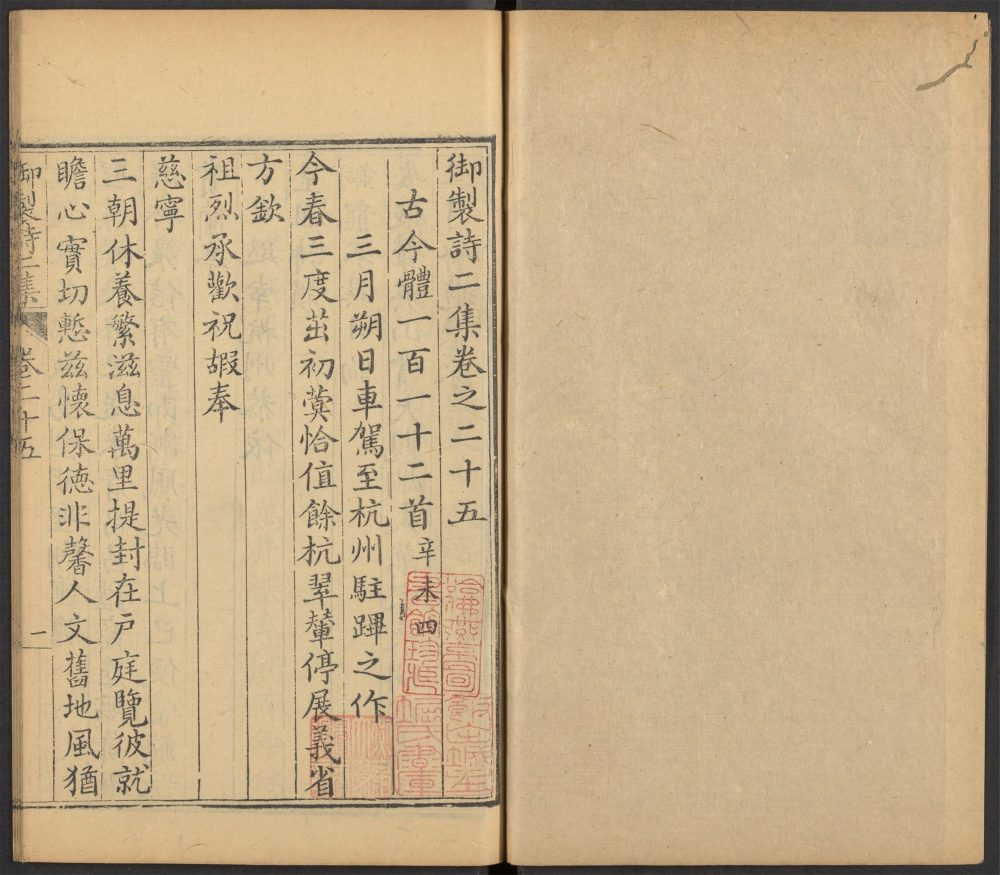 御製詩二集卷之二十五
古今體一百一十二首辛未四
三月朔日車駕至杭州駐蹕之作
今春三度茁初蓂恰值餘杭翠輦停展義省
方欽
祖烈承歡祝嘏奉
慈寧
三朝休養繁滋息萬里提封在戶庭覽彼就
瞻心實切慙茲懷保德非馨人文舊地風猶
御製詩二集 卷二十五 一